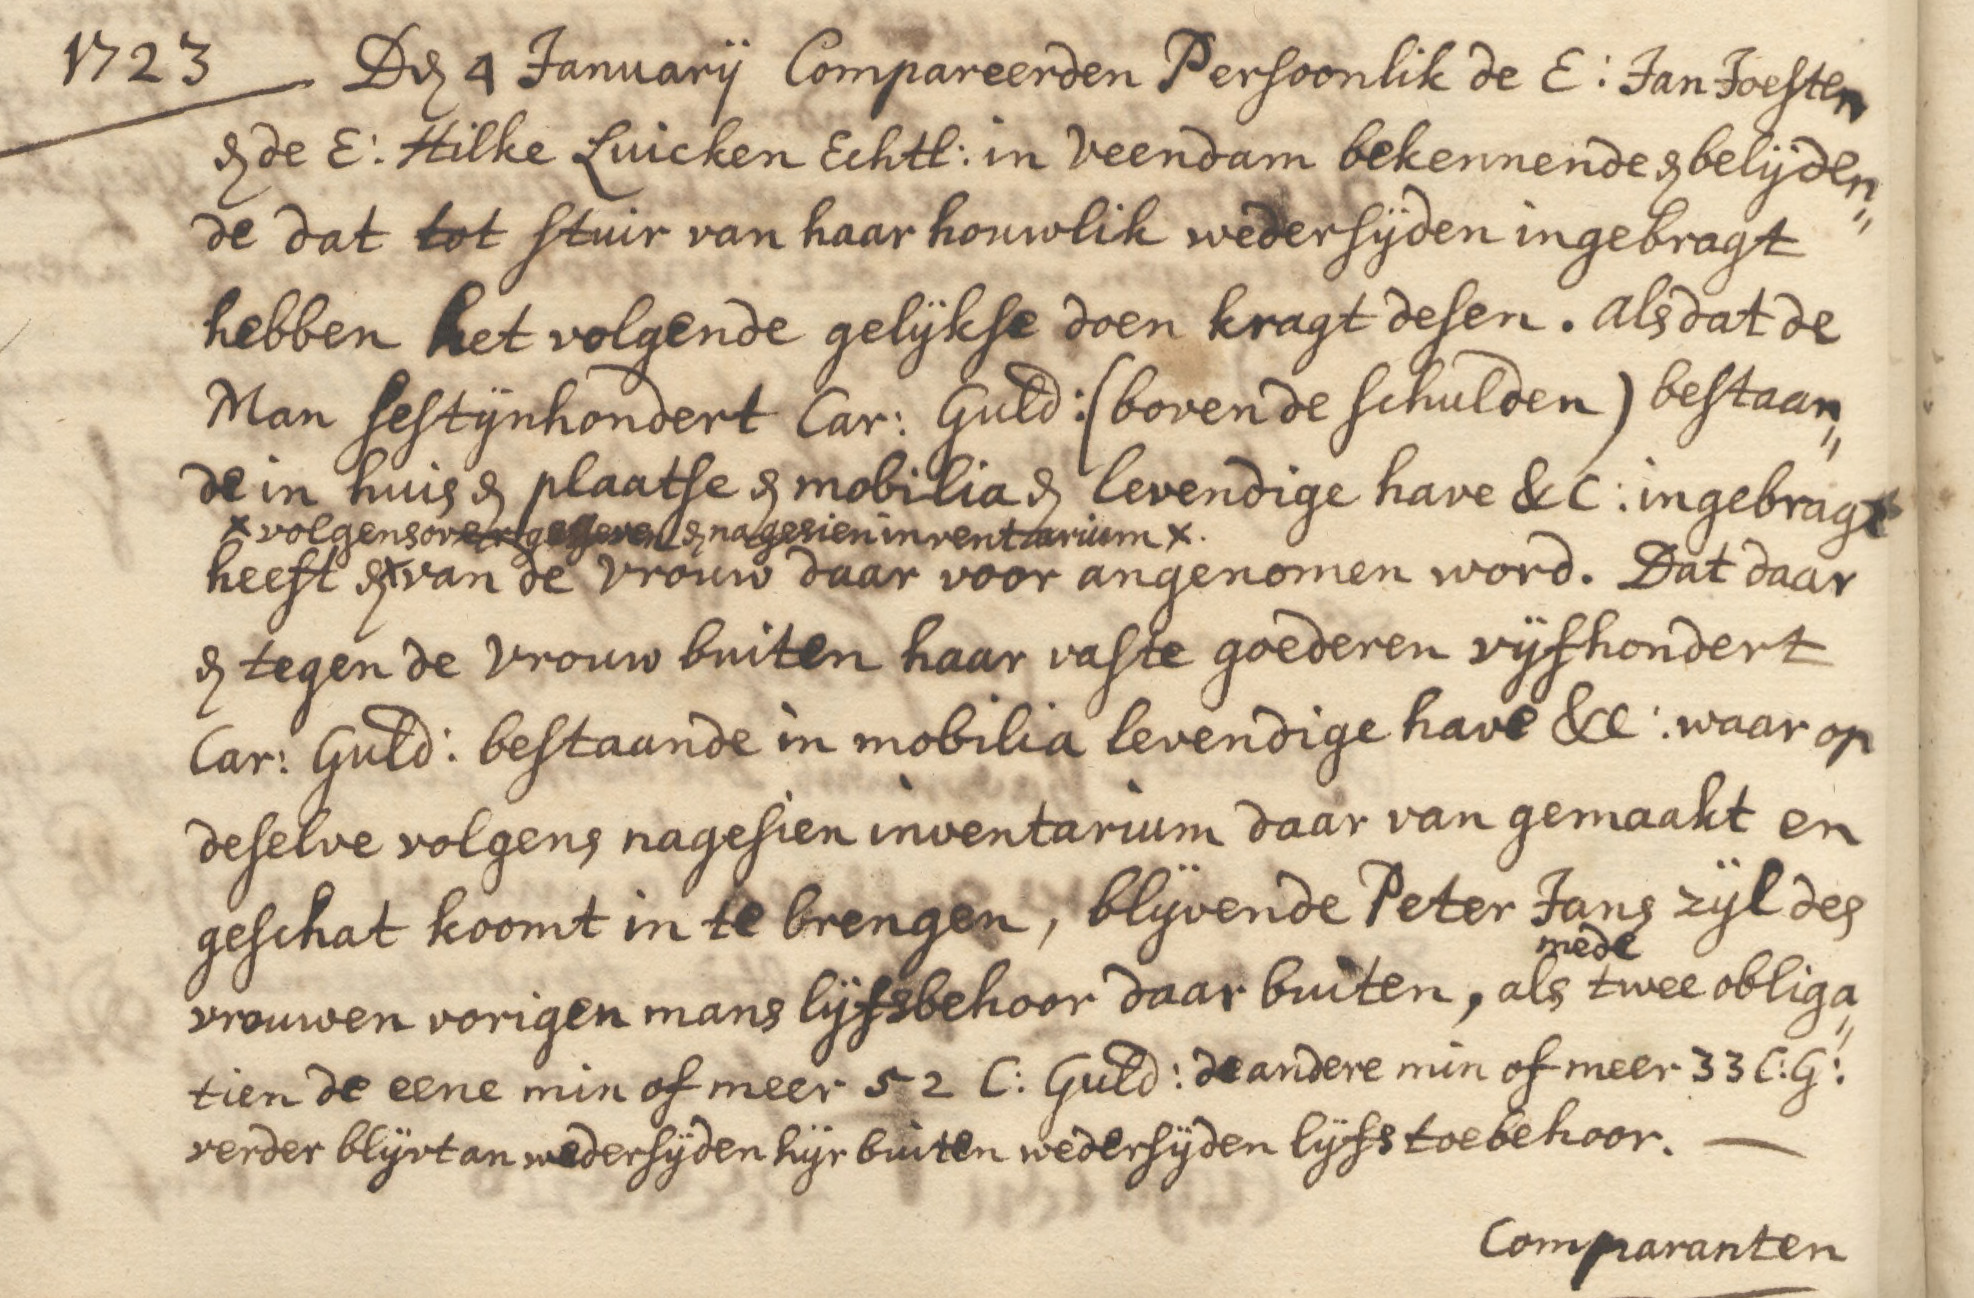 1723 Den 4 Januarij Compareerden Persoonlik de E: Jan Joesten
en de E: Hilke Luicken Echtl: in Veendam bekennende en belijden"
de dat tot stuir van haar houwlik wedersijden ingebragt
hebben het volgende gelijkse doen kragt desen. als dat de
Man sestijnhondert Car: Guld: (boven de schulden) bestaan"
de in huis en plaatse en mobilia en levendige have &c: ingebragt
x volgens overgegeven en nagesien inventarium x.
heeft en x van de vrouw daar voor angenomen word. Dat daar
en tegen de vrouw buiten haar vaste goederen vijfhondert
Car: Guld: bestaande in mobilia levendige have &c: waar op
deselve volgens nagesien inventarium daar van gemaakt en
geschat koomt in te brengen, blijvende Peter Jans zijl des
mede
vrouwen vorigen mans lijfsbehoor daar buiten, als twee obliga"
tien de eene min of meer 52 C: Guld: de andere min of meer 33 C:G:
verder blijvt an wedersijden hijr buiten wedersijden lijfs toebehoor.
Comparanten